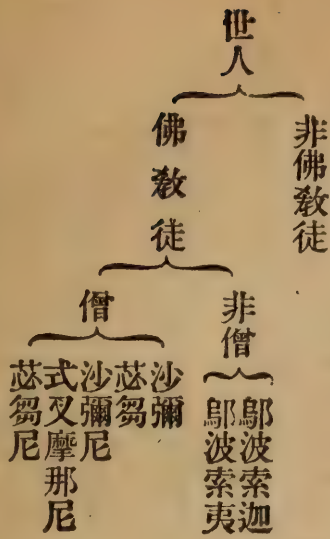 世人
非佛敎徒
佛敎徒
非僧
僧
鄔波索迦
鄔波索夷
沙彌
苾芻
沙彌尼
式叉摩那尼
苾芻尼